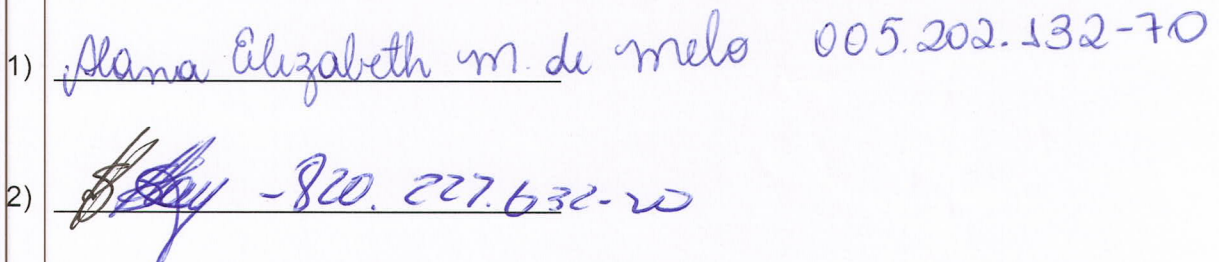 1) Alana Elizabeth M. de Melo 005.202.132-70
2) -820.227.632-20